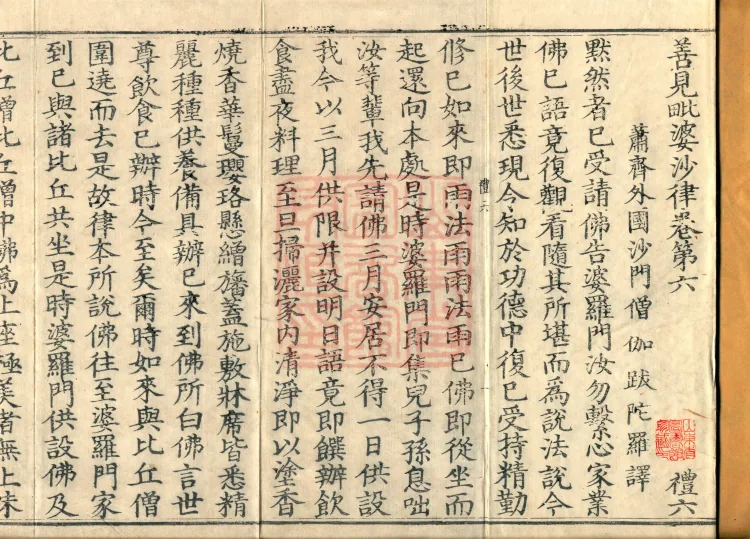 善見毗婆沙律卷第六 禮六
蕭齊外國沙門僧伽跋陀羅譯
默然者已受請佛告婆羅門汝勿繫心家業
佛已語竟復觀看隨其所堪而為說法說今
世後世悉現今知於功德中復已受持精勤
禮六
修已如來即雨法雨雨法雨已佛即從坐而
起還向本處是時婆羅門即集兒子孫息咄
汝等輩我先請佛三月安居不得一日供設
我今以三月供限并設明日語竟即饌辦飲
食盡夜料理至旦掃灑家內清淨即以塗香
燒香華鬘瓔珞懸繒旛蓋施敷牀席皆悉精
麗種種供養備具辦已來到佛所白佛言世
尊飲食已辦時今至矣爾時如來與比丘僧
圍遶而去是故律本所說佛往至婆羅門家
到已與諸比丘共坐是時婆羅門供設佛及
比丘僧比丘僧中佛為上座極美者無上味